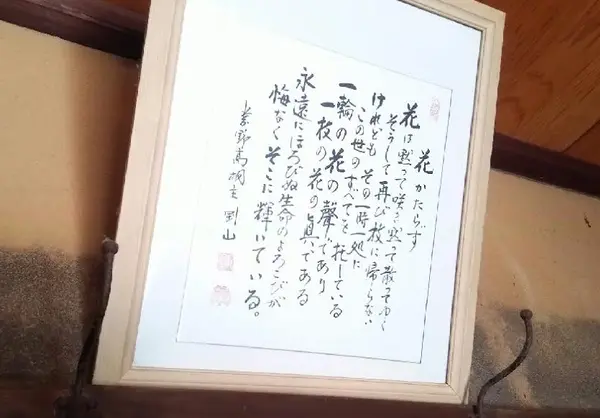 花かたらず
花は黙って咲き黙って散ってゆく
そうして再び枝に帰らない
けれども その一時一処に
この世のすべてを托している
一輪の花の聲であり
一枝の花の眞である
永遠にほろびぬ生命のよろこびが
悔なくそこに輝いている。